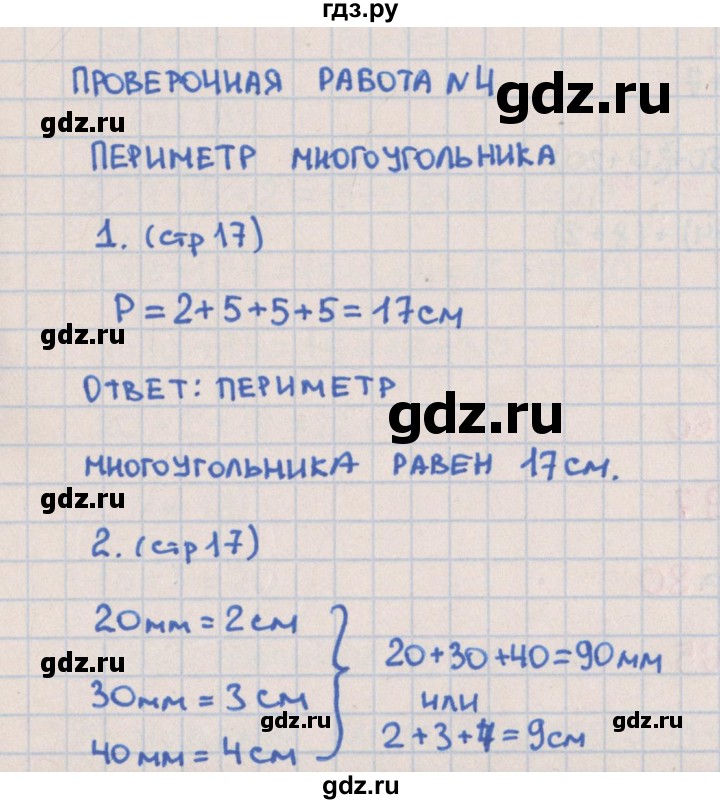 гдз.ру
ПРОВЕРОЧНАЯ РАБОТА №4
gdz.ru
gdz.ru
ПЕРИМЕТР МНОГОУГОЛЬНИКА
1. (стр 17)
P = 2+5+5+5 = 17 см
gdz.ru
ОТВЕТ: ПЕРИМЕТР
gdz.ru
МНОГОУГОЛЬНИКА РАВЕН 17 см.
gdz.ru
2. (стр 17)
20 мм = 2 см
gdz.ru
20+30+40=90 мм
30 мм = 3 см
или
gdz.ru
40 мм = 4 см
2+3+4=9 см
gdz.ru
gdz.ru